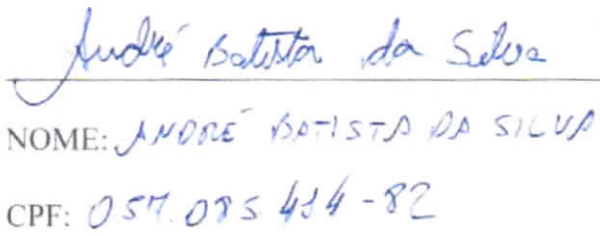 André Batista da Silva
NOME: ANDRÉ BATISTA DA SILVA
CPF: 057.085.414-82